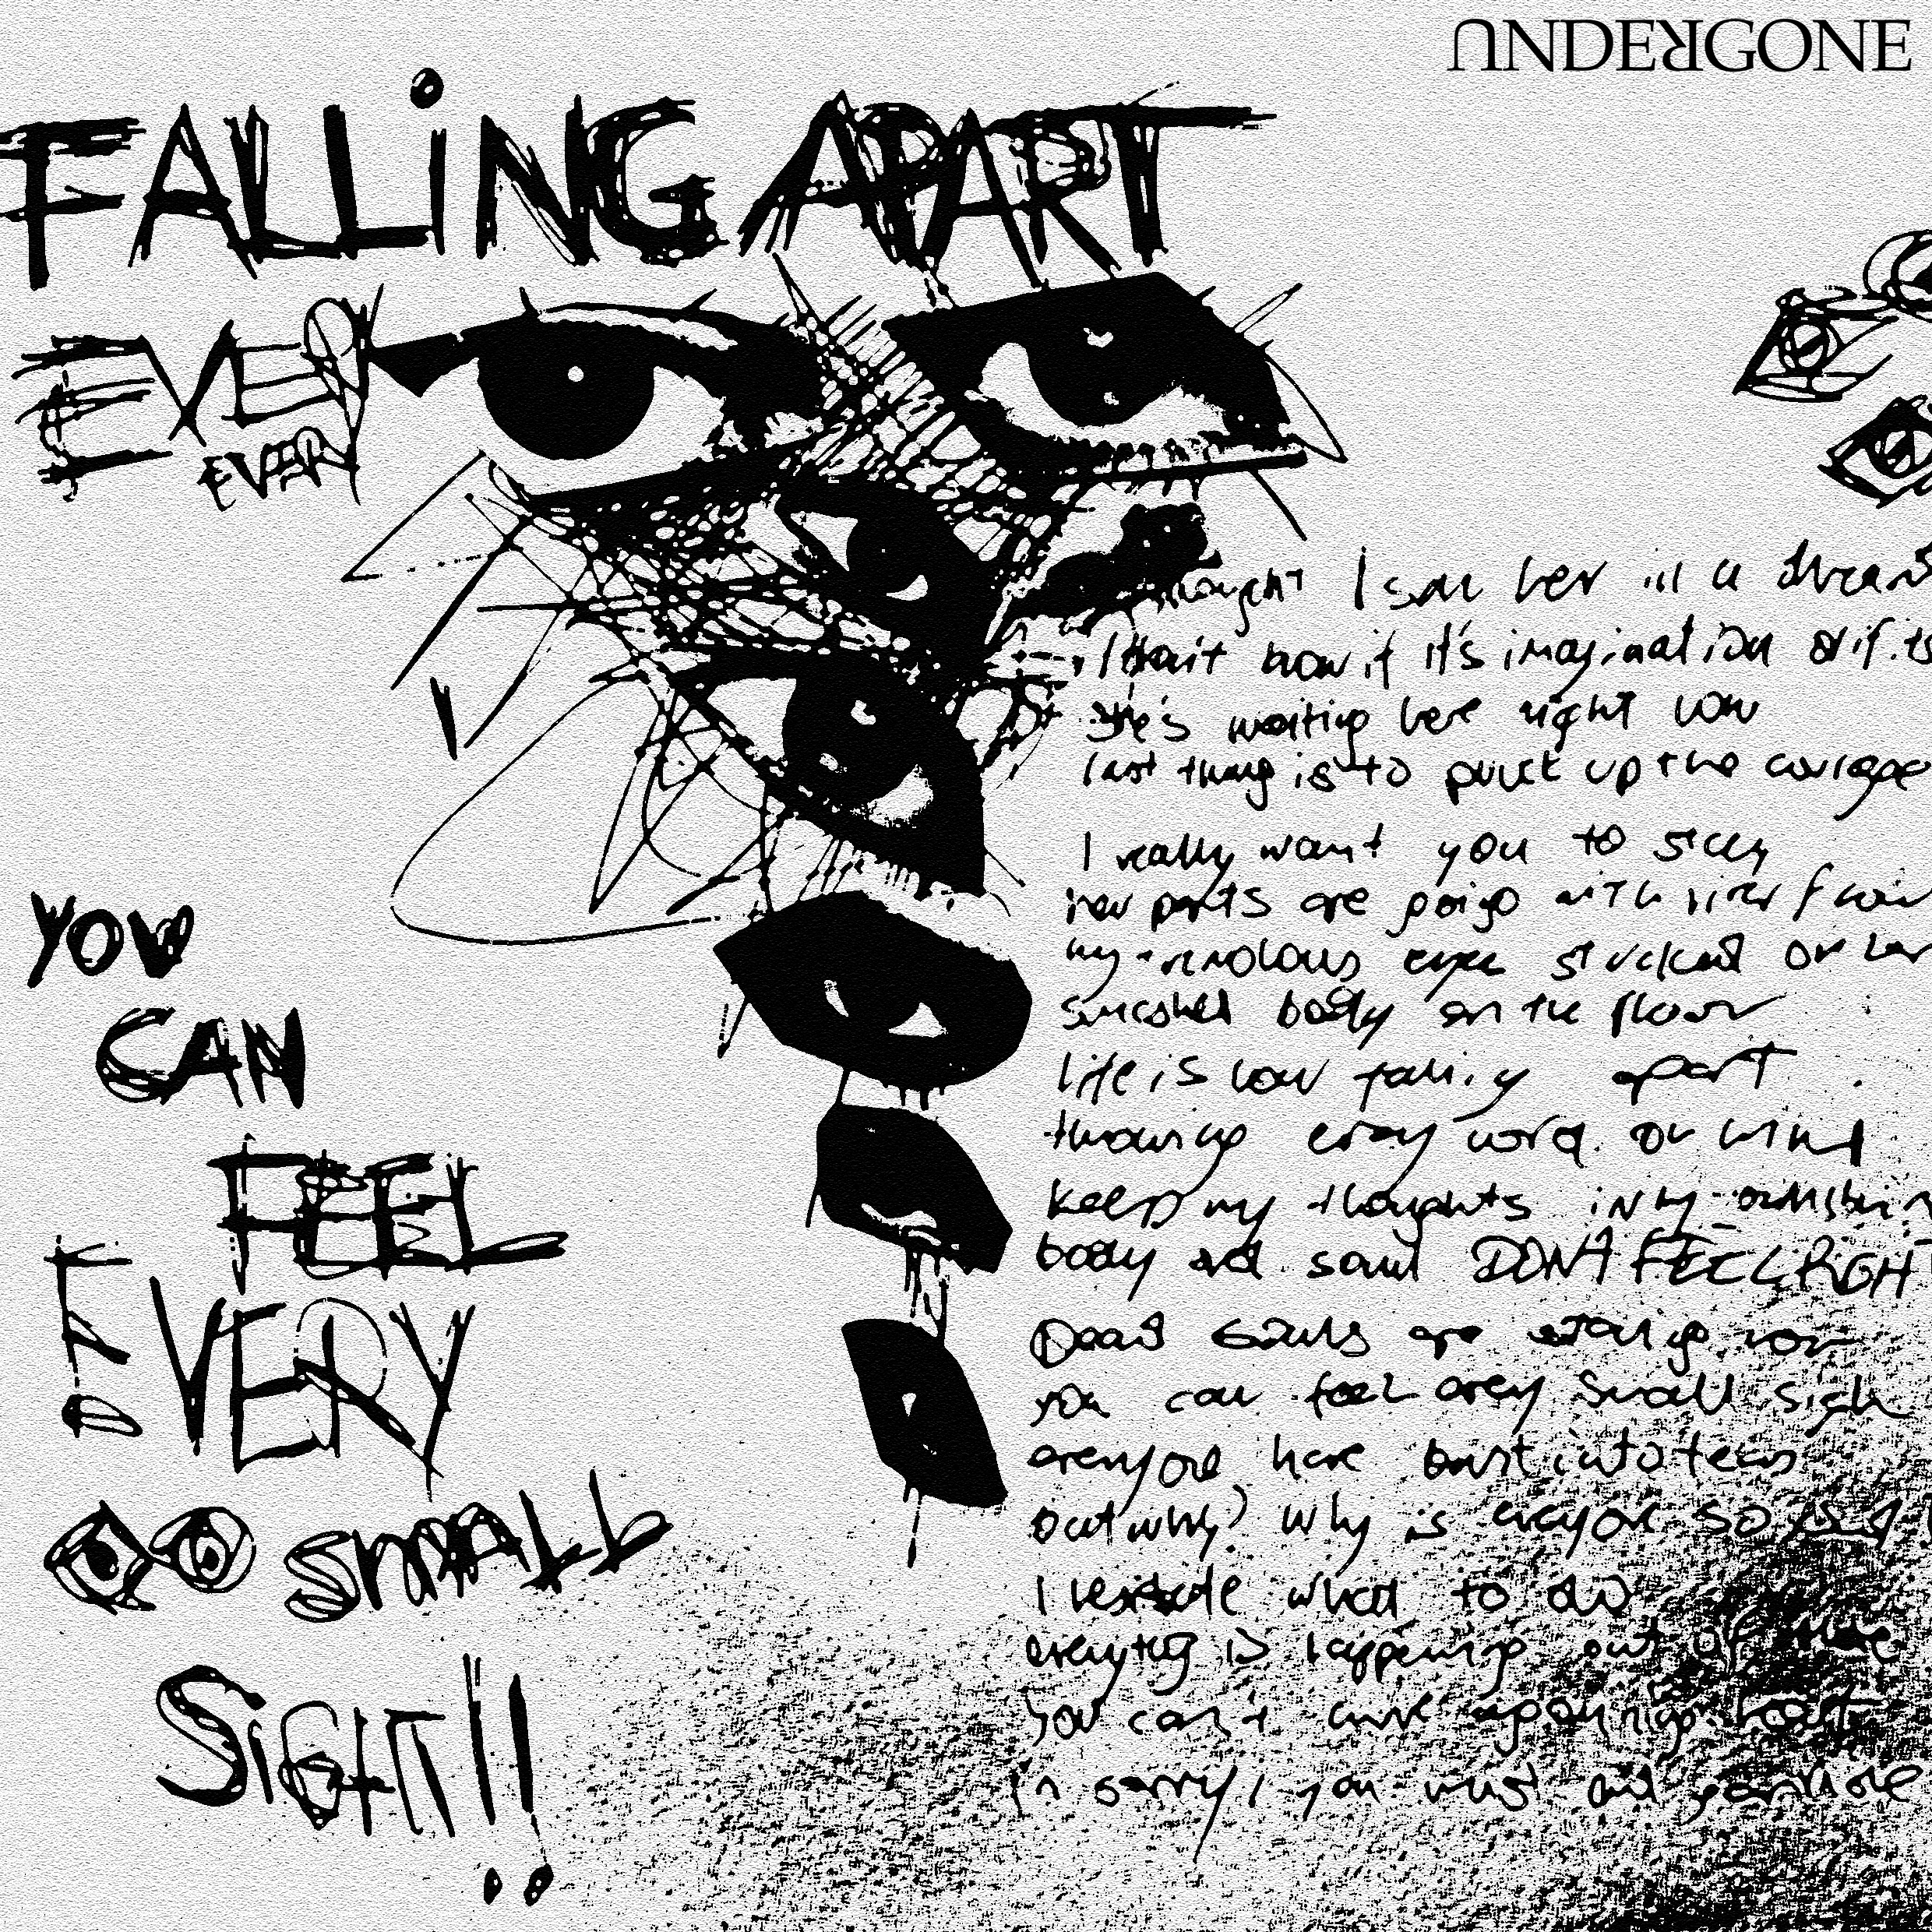 UNDERGONE
FALLiNG APART
EVER
EVER
YOU
CAN
FEEL
EVERY
SMALL
SIGHT!!
thought I saw her in a dream
I don't know if it's imagination or if its
She's waiting here right now
last thing is to pluck up the courage
I really want you to stay
her parts are going with her
my eyes stucked on her
smashed body on the floor
life is now falling apart
throwing every word on mind
keep my thoughts in my
body and soul DON'T FEEL RIGHT
Dead souls are now
you can feel every small sigh
everyone here burst into tears
but why? why is everyone so
I hesitate what to do
everything is happening out of
you can't
I'm sorry, you must